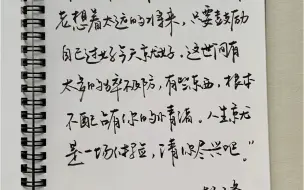 老想着太远的将来，只要鼓励
自己过好今天就好。这世间有
太多的猝不及防，有些东西，根本
不配占有你的情绪。人生就
是一场体验，请你尽兴吧。”